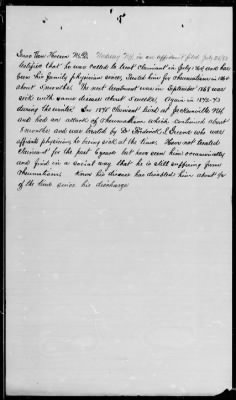 Isaac Van Hoesen M.D. in an affidavit filed July
testified that he was called to treat claimant in July 1869 and has
been his family physician since, treated him for rheumatism in 1869
about 2 months. The next treatment was in September 1868 was
sick with same disease about 3 weeks. Again in 1892-93
during the winter. In 1895 claimant lived at Jacksonville NY
and had an attack of rheumatism which continued about
2 months and was treated by Dr Frederick S. Greene who was
affiants physician he being sick at the time. Have not treated
claimant for the past 6 years but have seen him occasionally
and find in a social way that he is still suffering from
rheumatism. Know his disease has disabled him about
of the time since his discharge